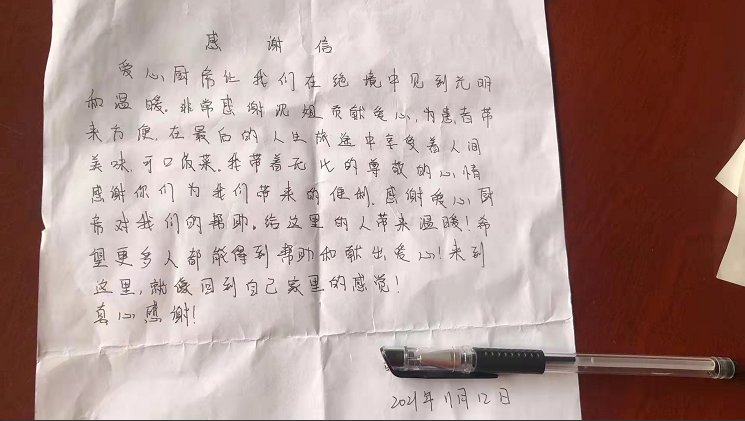 感谢信
爱心厨房让我们在绝境中见到光明
和温暖。非常感谢沈姐贡献爱心，为患者带
来方便，在最后的人生旅途中享受着人间
美味，可口饭菜。我带着无比的尊敬的心情
感谢你们为我们带来的便利，感谢爱心厨
房对我们的帮助。给这里的人带来温暖！希
望更多人都能得到帮助和献出爱心！来到
这里，就像回到自己家里的感觉！
真心感谢！
2021年11月12日